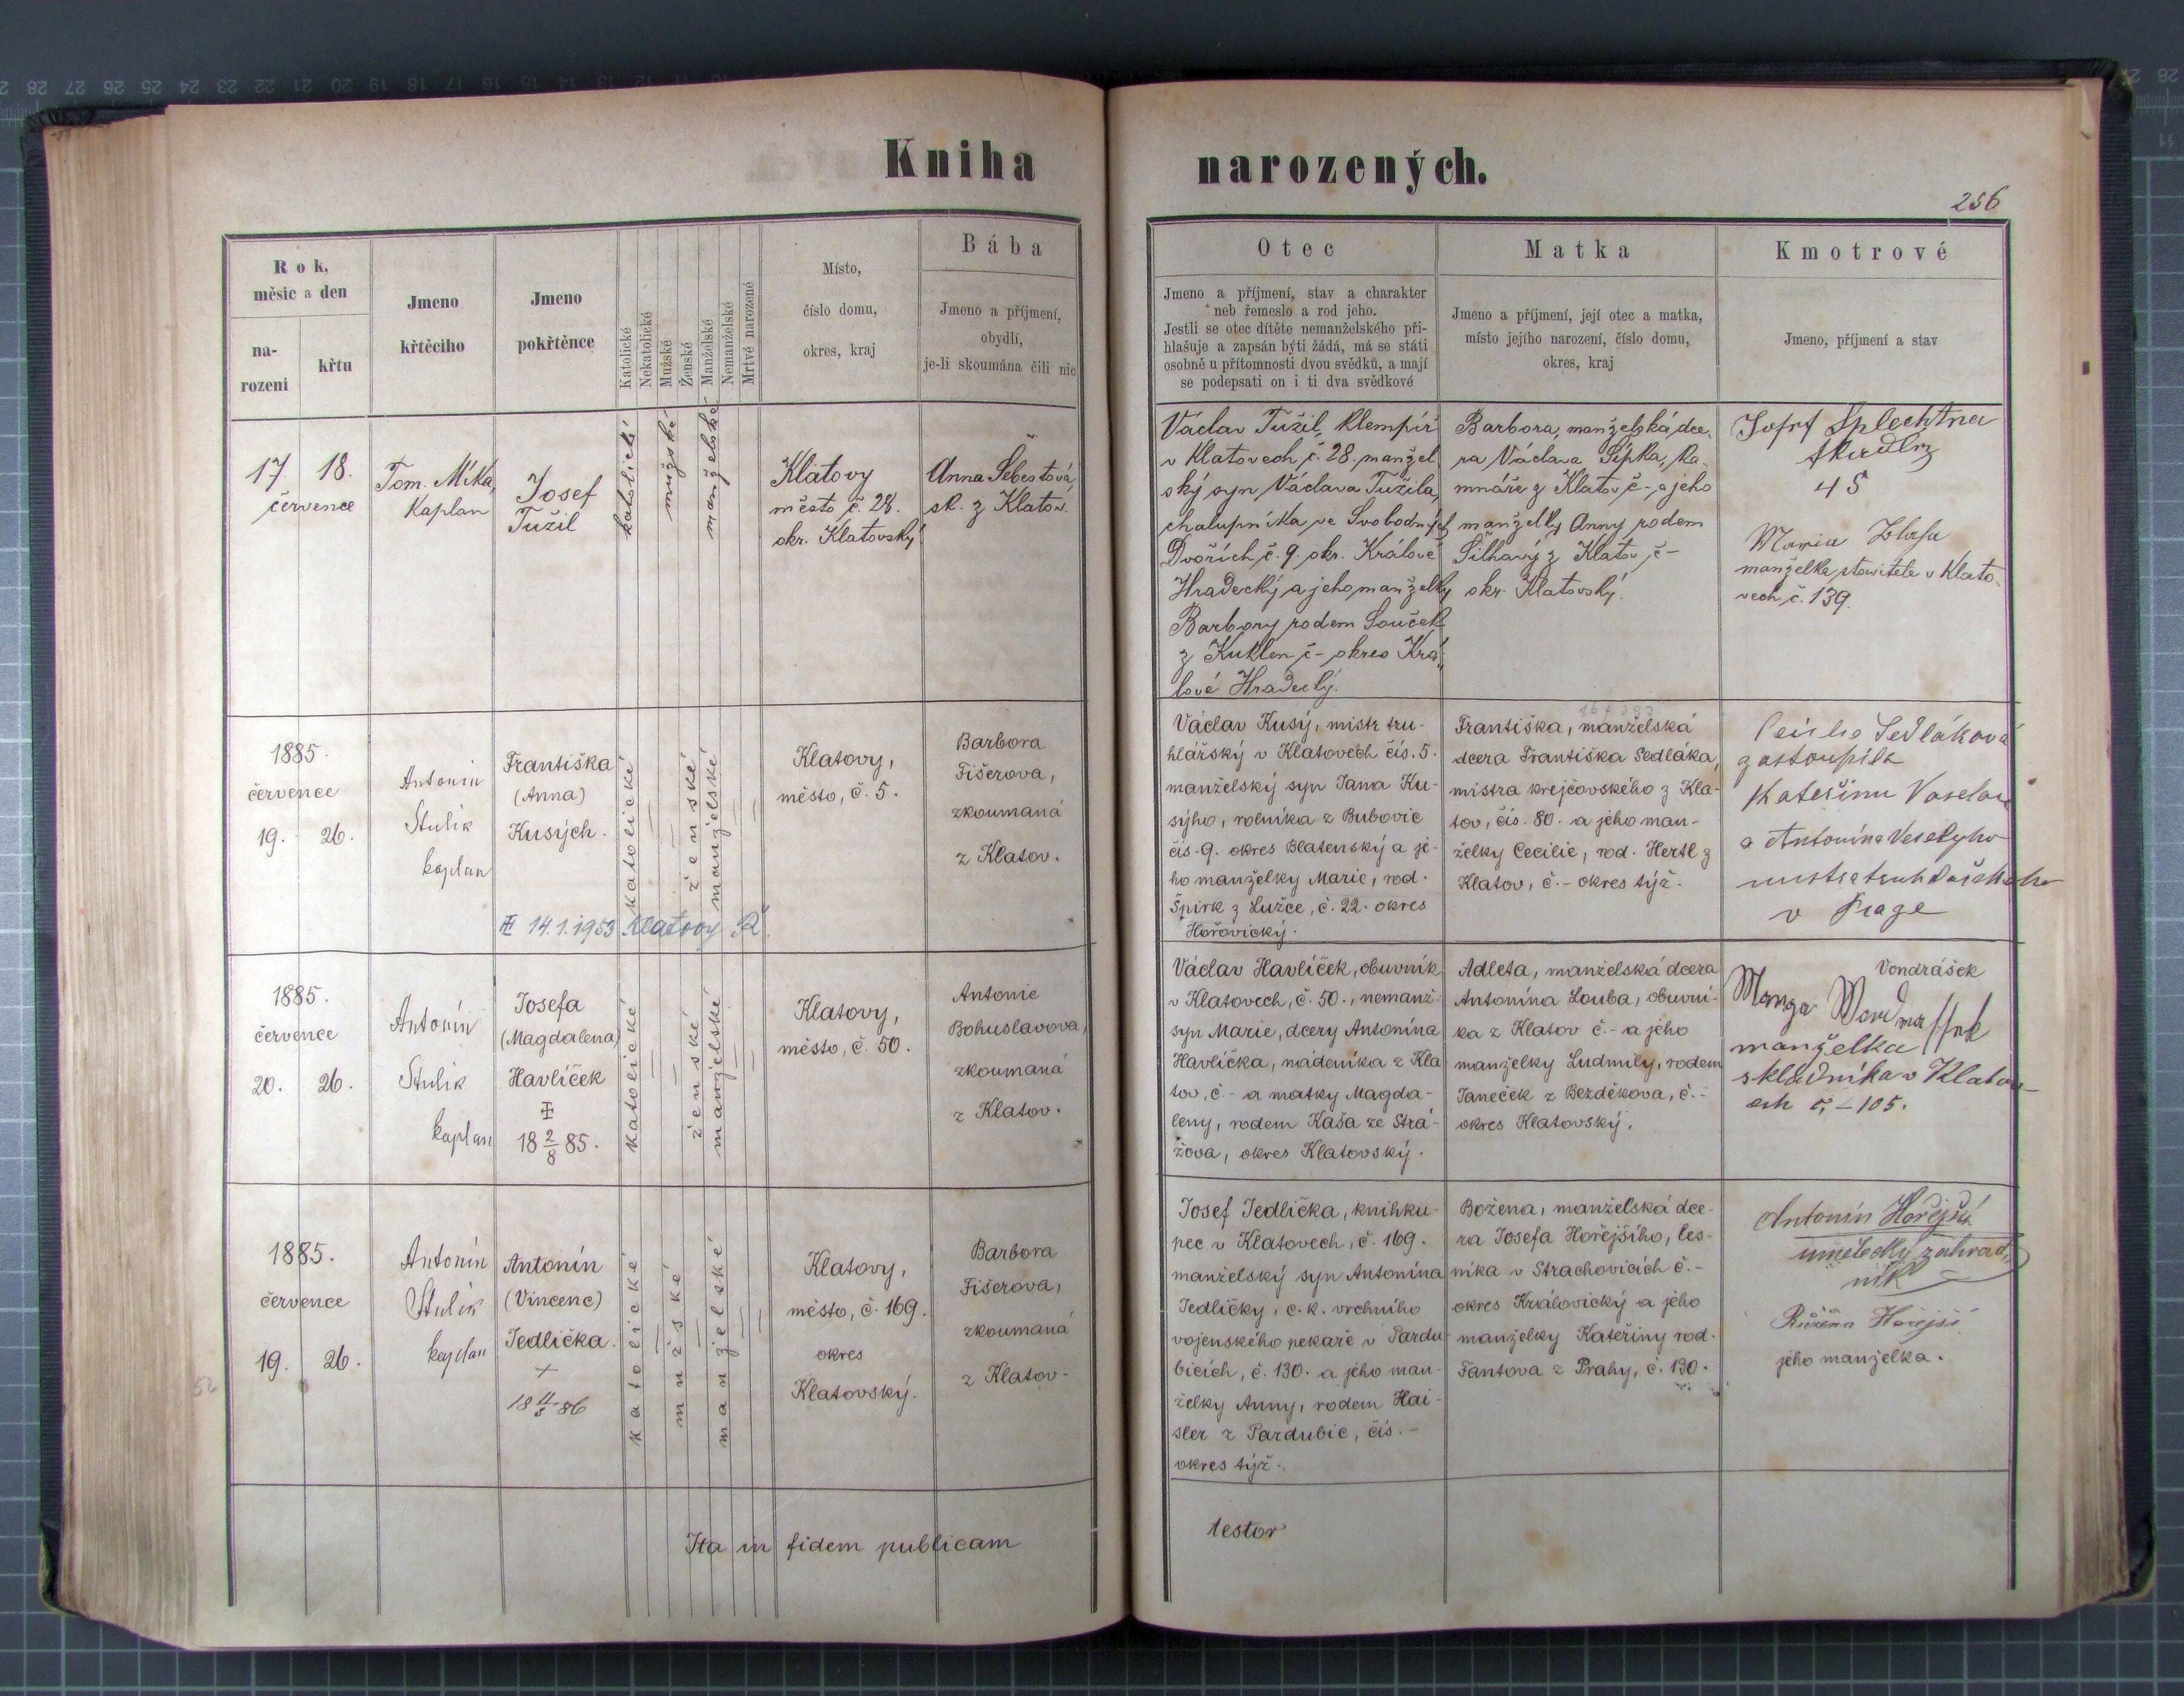 Kniha
narozených.
256
Rok,
měsíc a den
na-
rozeni
křtu
Jmeno
křtěcího
Jmeno
pokřtěnce
Katolické
Nekatolické
Mužské
Ženské
Manželské
Nemanželské
Mrtvé narozené
Místo,
číslo domu,
okres, kraj
Bába
Jmeno a příjmení,
obydlí,
je-li skoumána čili nic
Otec
Jmeno a příjmení, stav a charakter
neb řemeslo a rod jeho.
Jestli se otec dítěte nemanželského při-
hlašuje a zapsán býti žádá, má se státi
osobně u přítomnosti dvou svědků, a mají
se podepsati on i ti dva svědkové
Matka
Jmeno a příjmení, její otec a matka,
místo jejího narození, číslo domu,
okres, kraj
Kmotrové
Jmeno, příjmení a stav
17. 18.
července
Tom. Míka,
Kaplan
Josef
Tužil
katolické
mužské
manželské
Klatovy
město č. 28.
okr. Klatovský
Anna Šebestová,
sk. z Klatov.
Václav Tužil, klempíř
v Klatovech č. 28. manžel
ský syn Václava Tužila,
chalupníka ve Svobodných
Dvořích č. 9. okr. Králové
Hradecký a jeho manželky
Barbory rodem Souček
z Kuklen č - okres Krá
lové Hradecký.
Barbora, manželská dce
ra Václava Šípka, ka
mnáře z Klatov č - a jeho
manželky Anny rodem
Šilhavý z Klatov č -
okr. Klatovský.
Josef Splechtna
45
Maria
manželka stavitele v Klato
vech č. 139.
1885.
července
19. 26.
Antonín
Stulík
kaplan
Františka
(Anna)
Kusých.
14.1.1953 Klatovy
katolické
ženské
manželské
Klatovy,
město, č. 5.
Barbora
Fišerova,
zkoumaná
z Klatov.
Václav Kusý, mistr tru-
hlářský v Klatovech čís. 5.
manželský syn Jana Ku-
sýho, rolníka z Bubovic
čís. 9. okres Blatenský a je-
ho manželky Marie, rod.
Špirk z Lužce, č. 22. okres
Hořovický.
Františka, manželská
dcera Františka Sedláka,
mistra krejčovského z Kla-
tov, čís. 80. a jeho man-
želky Cecilie, rod. Hertl z
Klatov, č. - okres týž.
Sedláková
zastoupila
Kateřinu
a Antonína Veselyho
v Praze
1885.
července
20. 26.
Antonín
Stulík
kaplan
Josefa
(Magdalena)
Havlíček
18 2/8 85.
katolické
ženské
manželské
Klatovy,
město, č. 50.
Antonie
Bohuslavova,
zkoumaná
z Klatov.
Václav Havlíček, obuvník
v Klatovech, č. 50., nemanž.
syn Marie, dcery Antonína
Havlíčka, nádeníka z Kla
tov, č. - a matky Magda-
leny, rodem Kaša ze Strá-
žova, okres Klatovský.
Adleta, manželská dcera
Antonína Louba, obuvní-
ka z Klatov č. - a jeho
manželky Ludmily, rodem
Janeček z Bezděkova, č. -
okres Klatovský.
Vondrášek
manželka
skladníka v Klatov
ech č. - 105.
1885.
července
19. 26.
Antonín
Stulík
kaplan
Antonín
(Vincenc)
Jedlička.
+
18 11/3 86
katolické
mužské
manželské
Klatovy,
město, č. 169.
okres
Klatovský.
Barbora
Fišerova,
zkoumaná
z Klatov.
Josef Jedlička, knihku-
pec v Klatovech, č. 169.
manželský syn Antonína
Jedličky, c. k. vrchního
vojenského pekaře v Pardu
bicích, č. 130. a jeho man-
želky Anny, rodem Hai-
sler z Pardubic, čís. -
okres týž.
Božena, manželská dce-
ra Josefa Hořejšího, les-
níka v Strachovicích č. -
okres Královický a jeho
manželky Kateřiny rod.
Fantova z Prahy, č. 130.
Antonín Hořejší
umělecký zahrad
ník
Růžena Hořejší
jeho manželka.
Ita in fidem publicam
testor